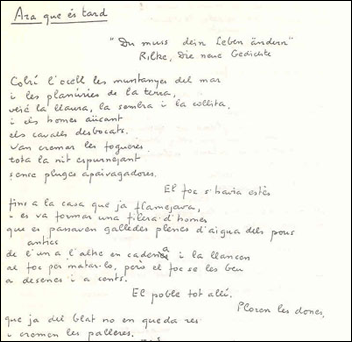 Ara que és tard
"Du muss dein Leben ändern"
Rilke, Die neue Gedichte
Cobrí l'ocell les muntanyes del mar
i les planúries de la terra,
veié la llaura, la sembra i la collita,
i els homes aücant
els cavalls desbocats.
Van cremar les fogueres
tota la nit espurnejant
sense pluges apaivagadores.
El foc s'havia estès
fins a la casa que ja flamejava,
i es va formar una filera d'homes
que es passaven galledes plenes d'aigua dels pous
antics
de l'un a l'altre en cadena i la llancen
al foc per matar-lo, però el foc se les beu
a desenes i a cents.
El poble tot allí.
Ploren les dones,
que ja del blat no en queda res
i cremen les palleres.